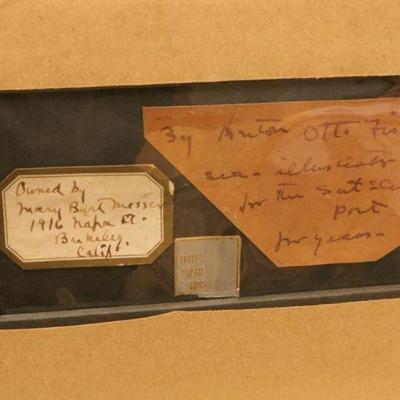 Owned by
Mary Burt Messer
1916 Napa St.
Berkeley,
Calif.
By Anton Otto Fis
sea-illustrator
for the Sat. Eve
Post
for years-
FRAME